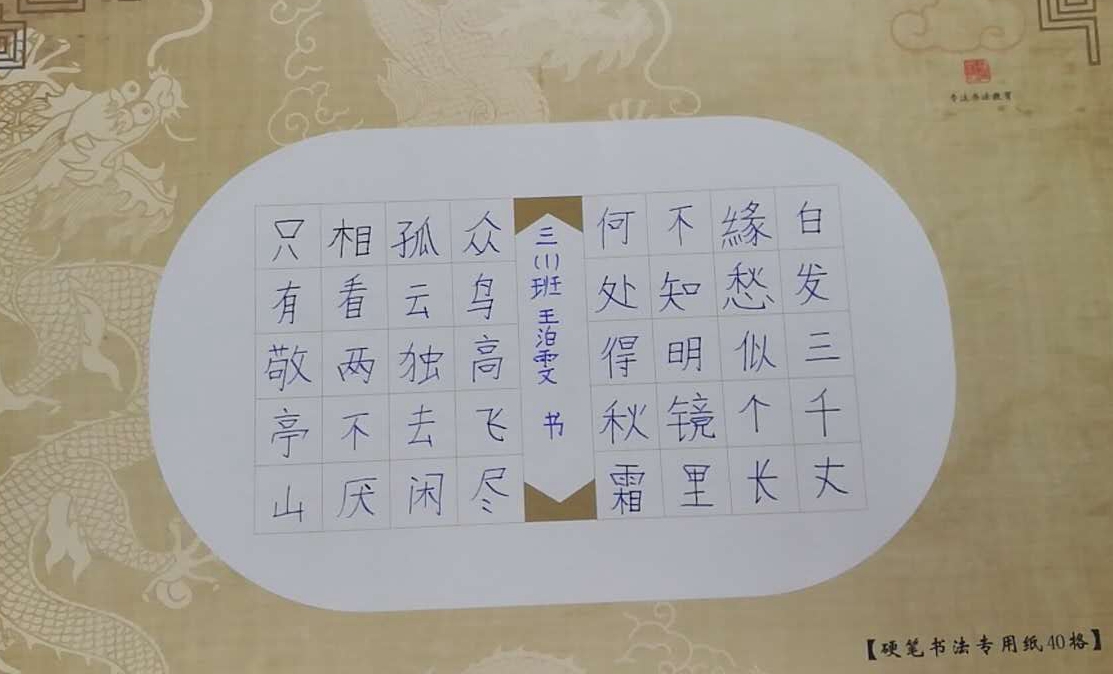 白发三千丈
緣愁似个长
不知明镜里
何处得秋霜
三(1)班 王泊雯 书
众鸟高飞尽
孤云独去闲
相看两不厌
只有敬亭山
【硬笔书法专用纸40格】